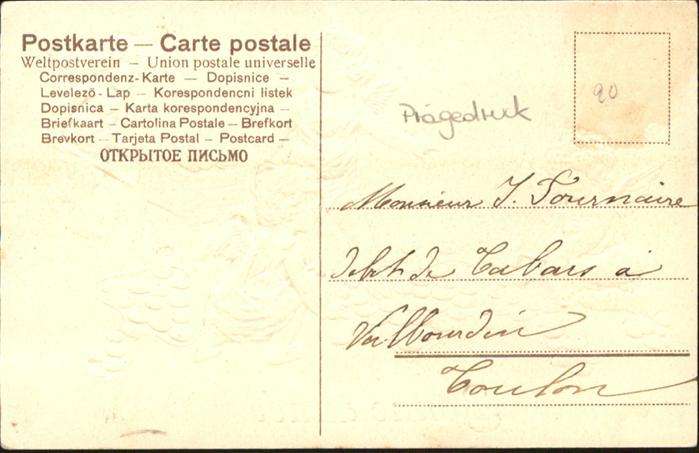 Postkarte — Carte postale
Weltpostverein — Union postale universelle
Correspondenz-Karte — Dopisnice —
Levelező-Lap — Korespondencni listek
Dopisnica — Karta korespondencyjna —
Briefkaart — Cartolina Postale — Brefkort
Brevkort — Tarjeta Postal — Postcard —
ОТКРЫТОЕ ПИСЬМО
Prägedruck
90
Monsieur J. Tournaire
débit de Tabacs à
Valbourdin
Toulon